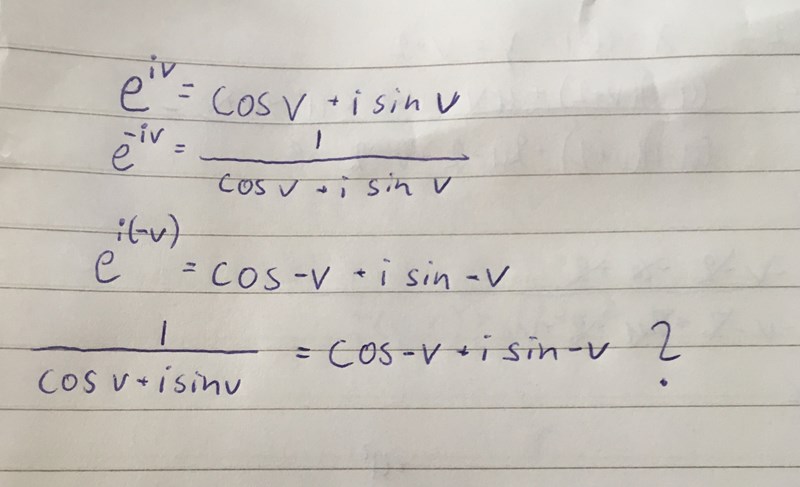 e^{iv} = cos v + i sin v
e^{-iv} = \frac{1}{cos v + i sin v}
e^{i(-v)} = cos -v + i sin -v
\frac{1}{cos v + i sin v} = cos -v + i sin -v ?